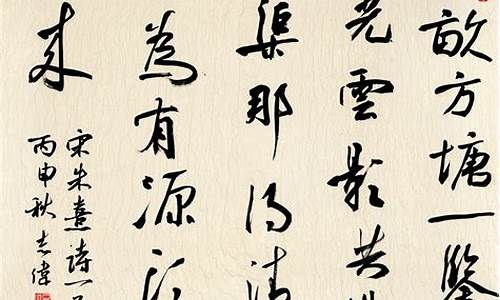 畝方塘一鑒
光雲影共
渠那得清
為有源頭
來
宋朱熹詩一首
丙申秋志偉